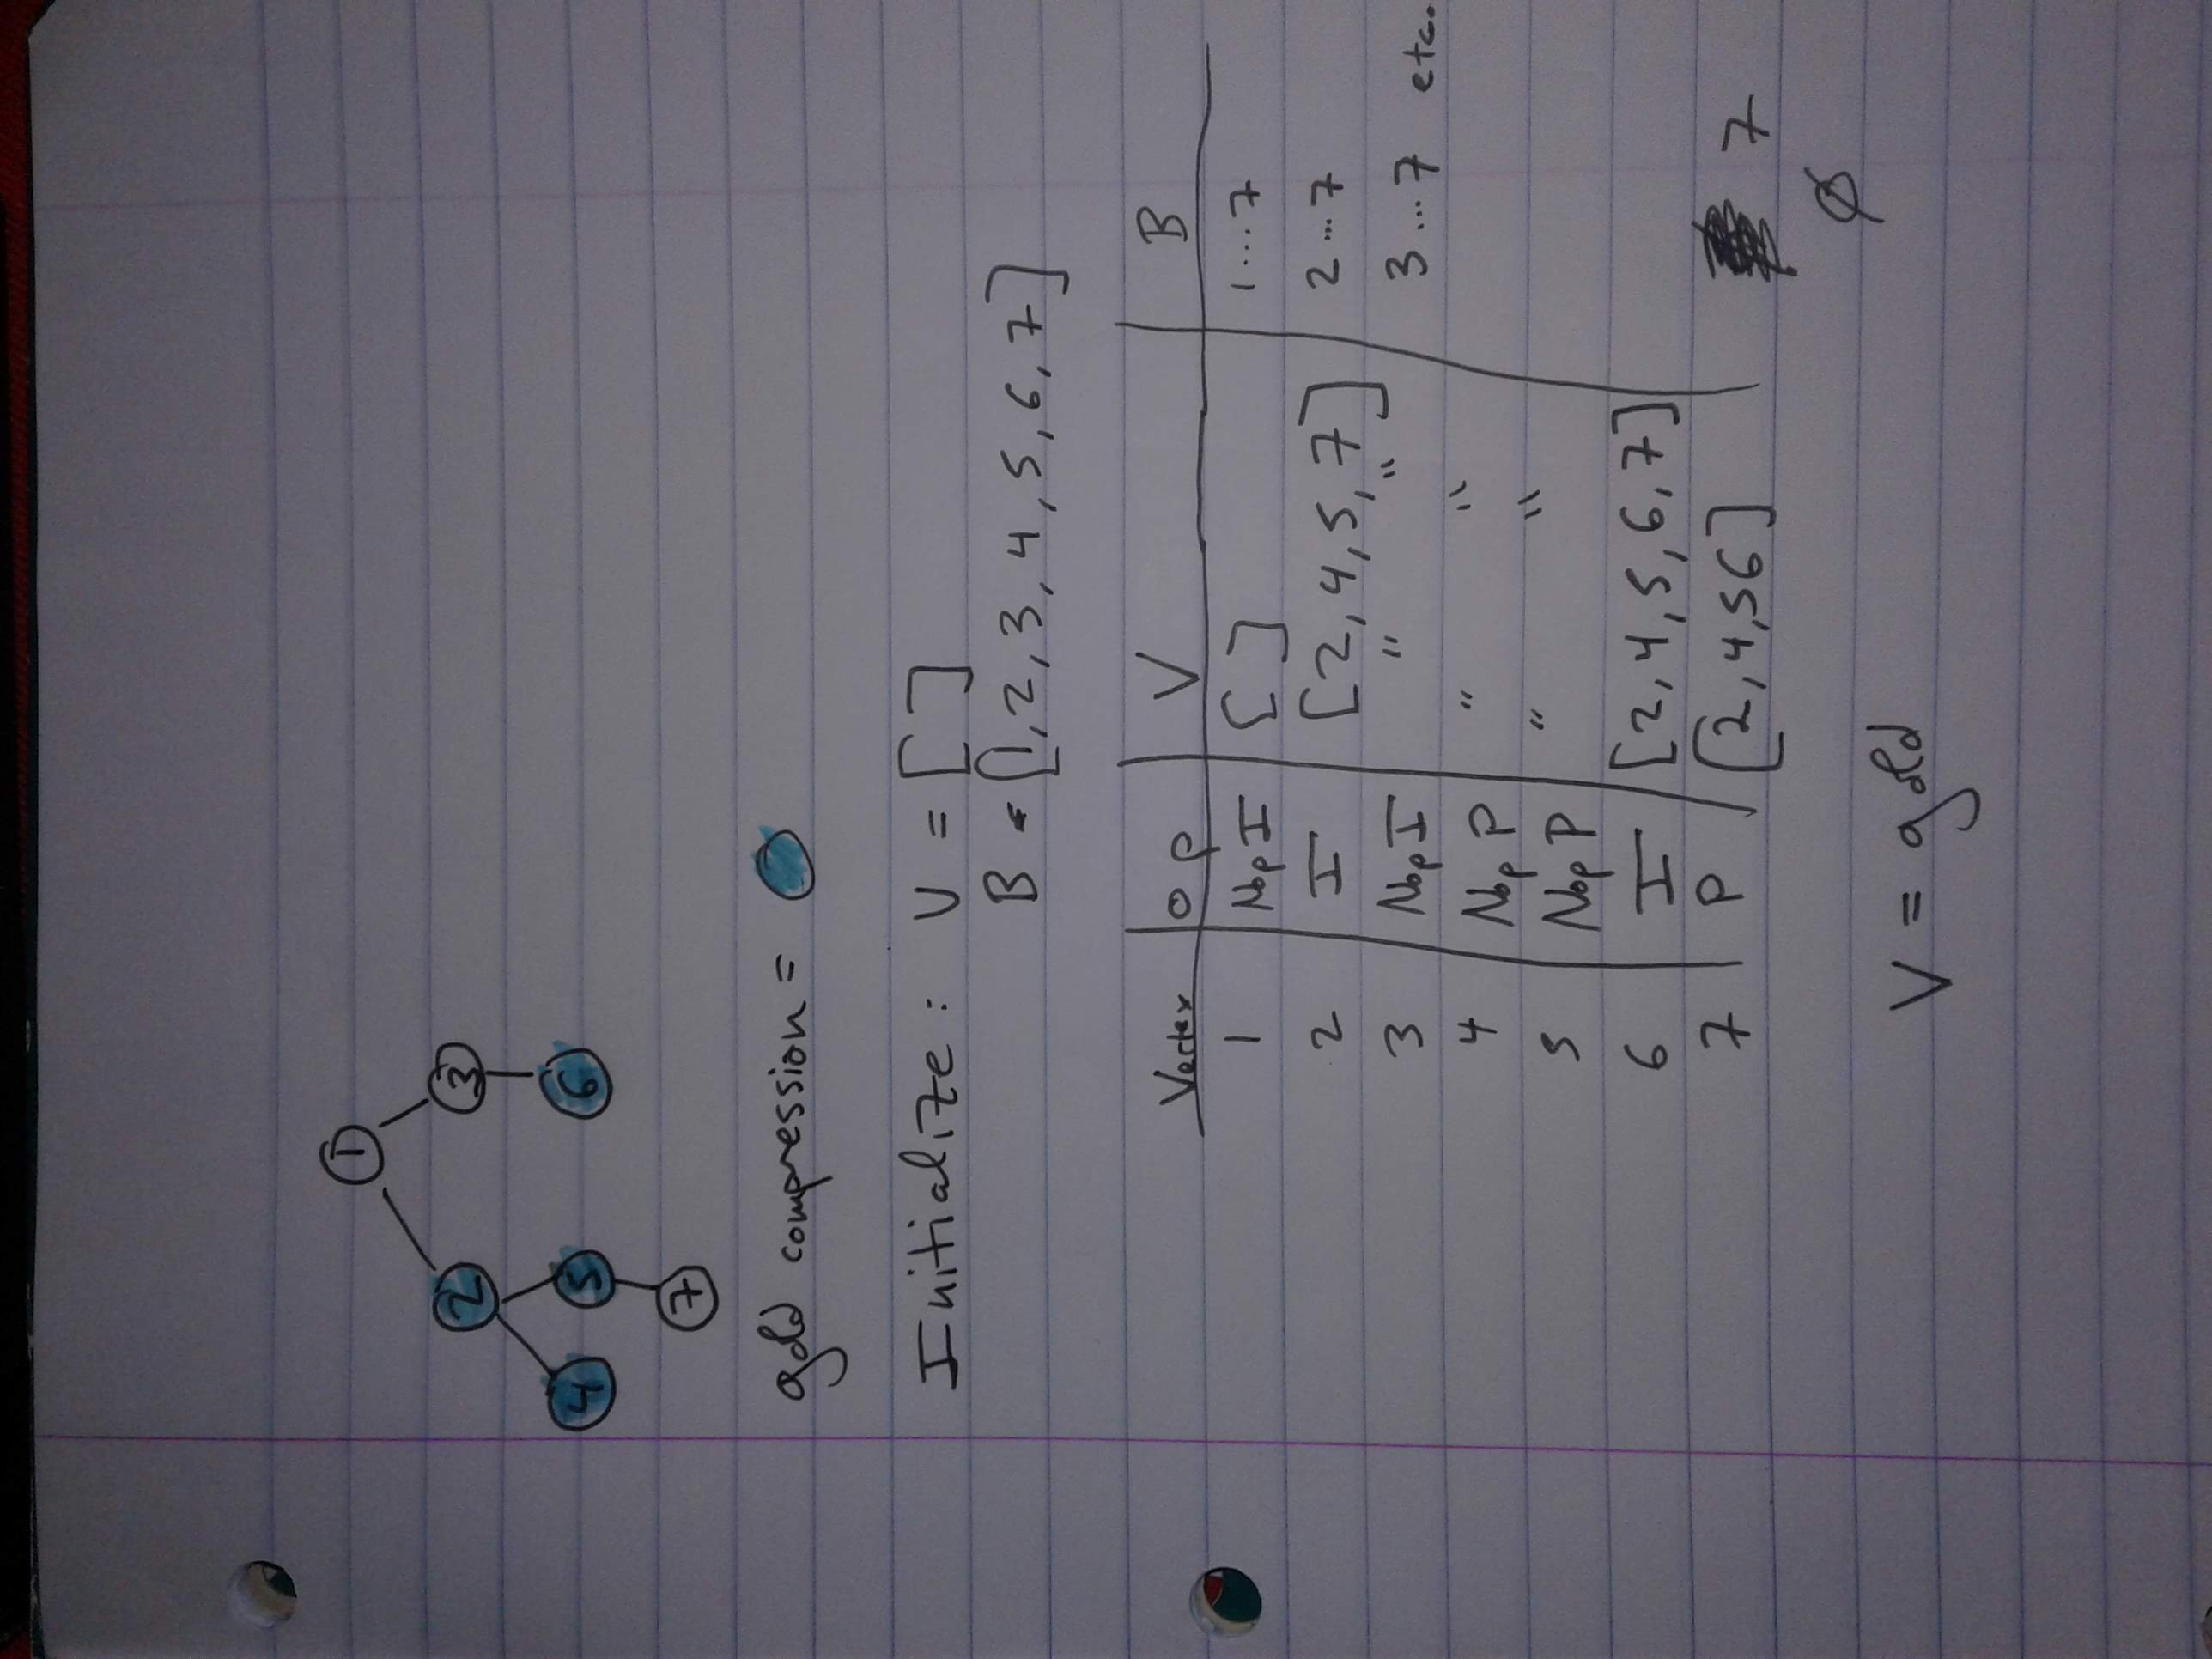 1
2 3
4 5 6
7
gold compression =
Initialize : V = [ ]
B = [1, 2, 3, 4, 5, 6, 7]
Vertex op V B
1 Nop I [ ] 1...7
2 I [2, 4, 5, 7] 2...7
3 Nop I " " 3...7 etc.
4 Nop P " "
5 Nop P " "
6 I [2, 4, 5, 6, 7]
7 P [2, 4, 5 6] 7
∅
V = gold